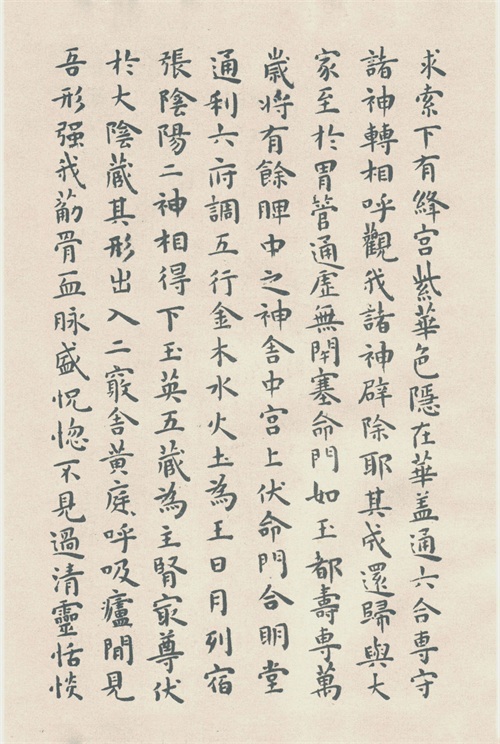 求索下有絳宮紫華色隱在華盖通六合専守
諸神轉相呼觀我諸神辟除耶其成還歸與大
家至於胃管通虛無閇塞命門如玉都壽専萬
歲将有餘脾中之神舎中宮上伏命門合明堂
通利六府調五行金木水火土為王日月列宿
張陰陽二神相得下玉英五藏為主腎寂尊伏
於大陰藏其形出入二竅舎黄庭呼吸廬閒見
吾形强我荕骨血脉盛怳惚不見過清靈恬惔